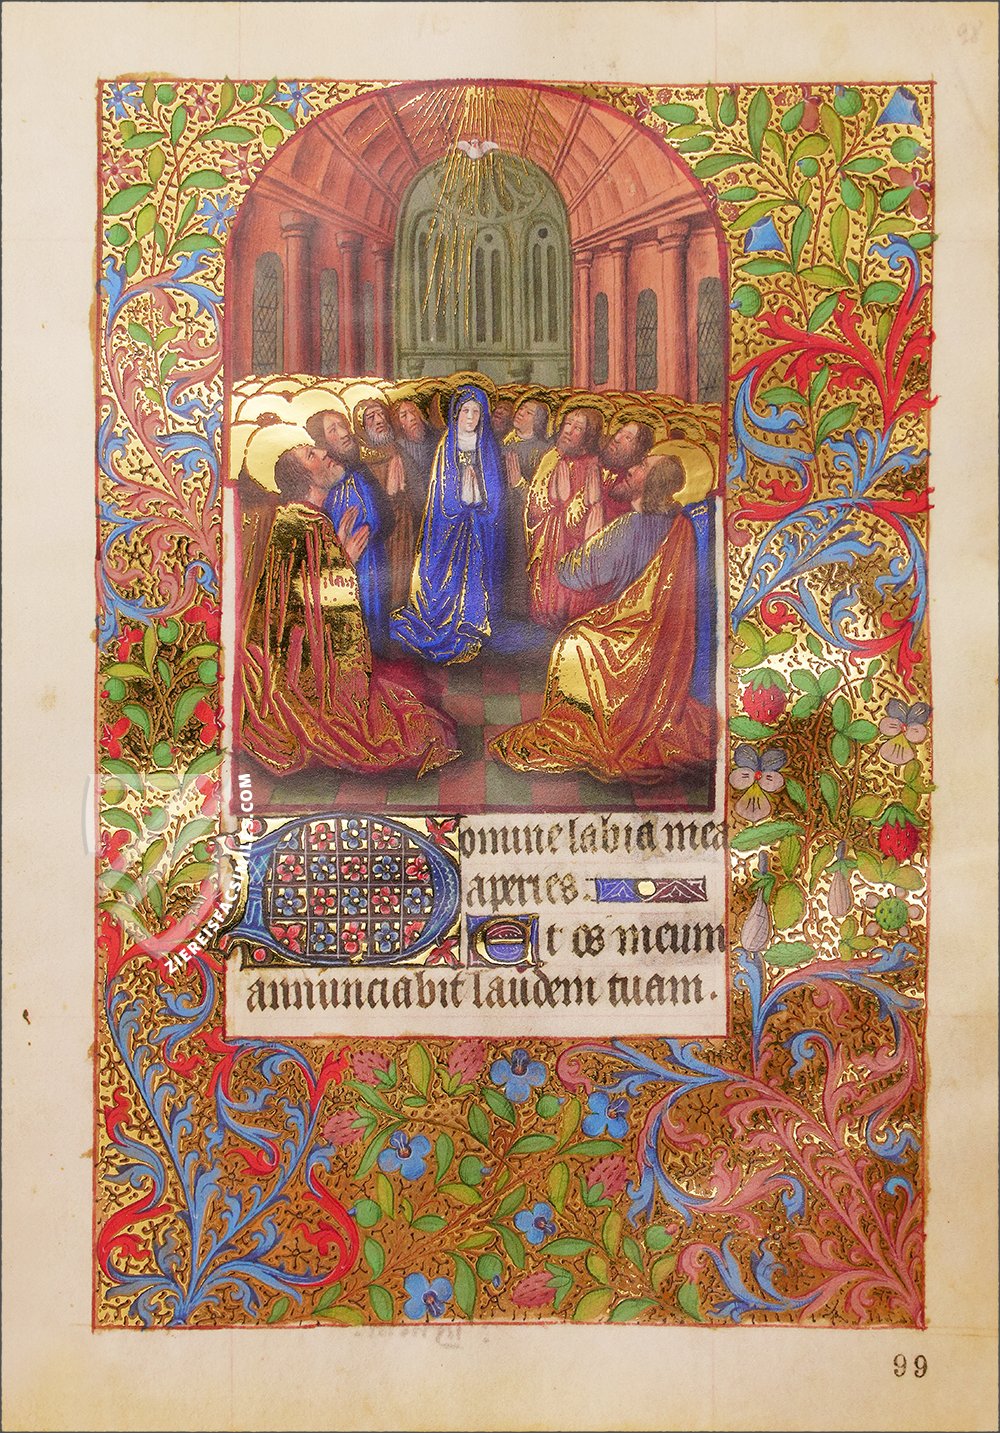 Domine labia mea
aperies.
Et os meum
annunciabit laudem tuam.
99
ZIEREISFACSIMILES.COM